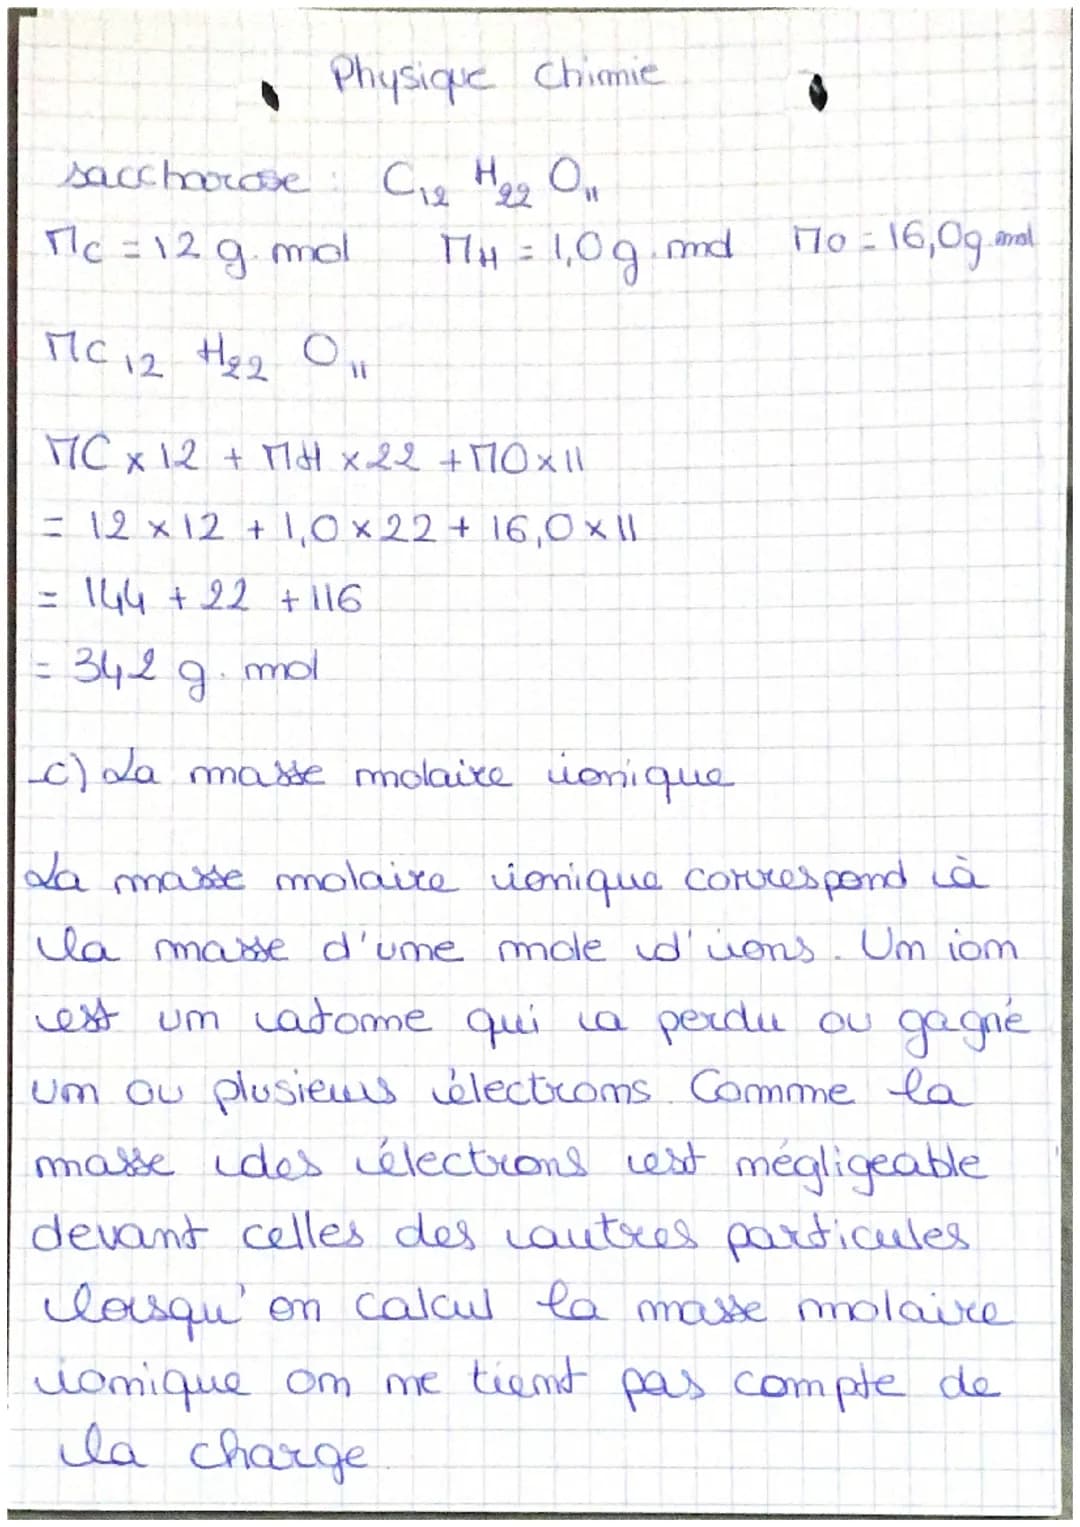 Physique Chimie
saccharose : C₁₂ H₂₂ O₁₁
Mc = 12 g. mol MH = 1,0g. mol Mo = 16,0g.mol
MC₁₂ H₂₂ O₁₁
MC x 12 + MH x 22 + MO x 11
= 12 x 12 + 1,0 x 22 + 16,0 x 11
= 144 + 22 + 116
= 342 g. mol
c) La masse molaire ionique
La masse molaire ionique correspond à
la masse d'une mole d'ions. Un ion
est un atome qui a perdu ou gagné
un ou plusieurs électrons. Comme la
masse des électrons est négligeable
devant celles des autres particules
lorsqu'on calcul la masse molaire
ionique on ne tient pas compte de
la charge.